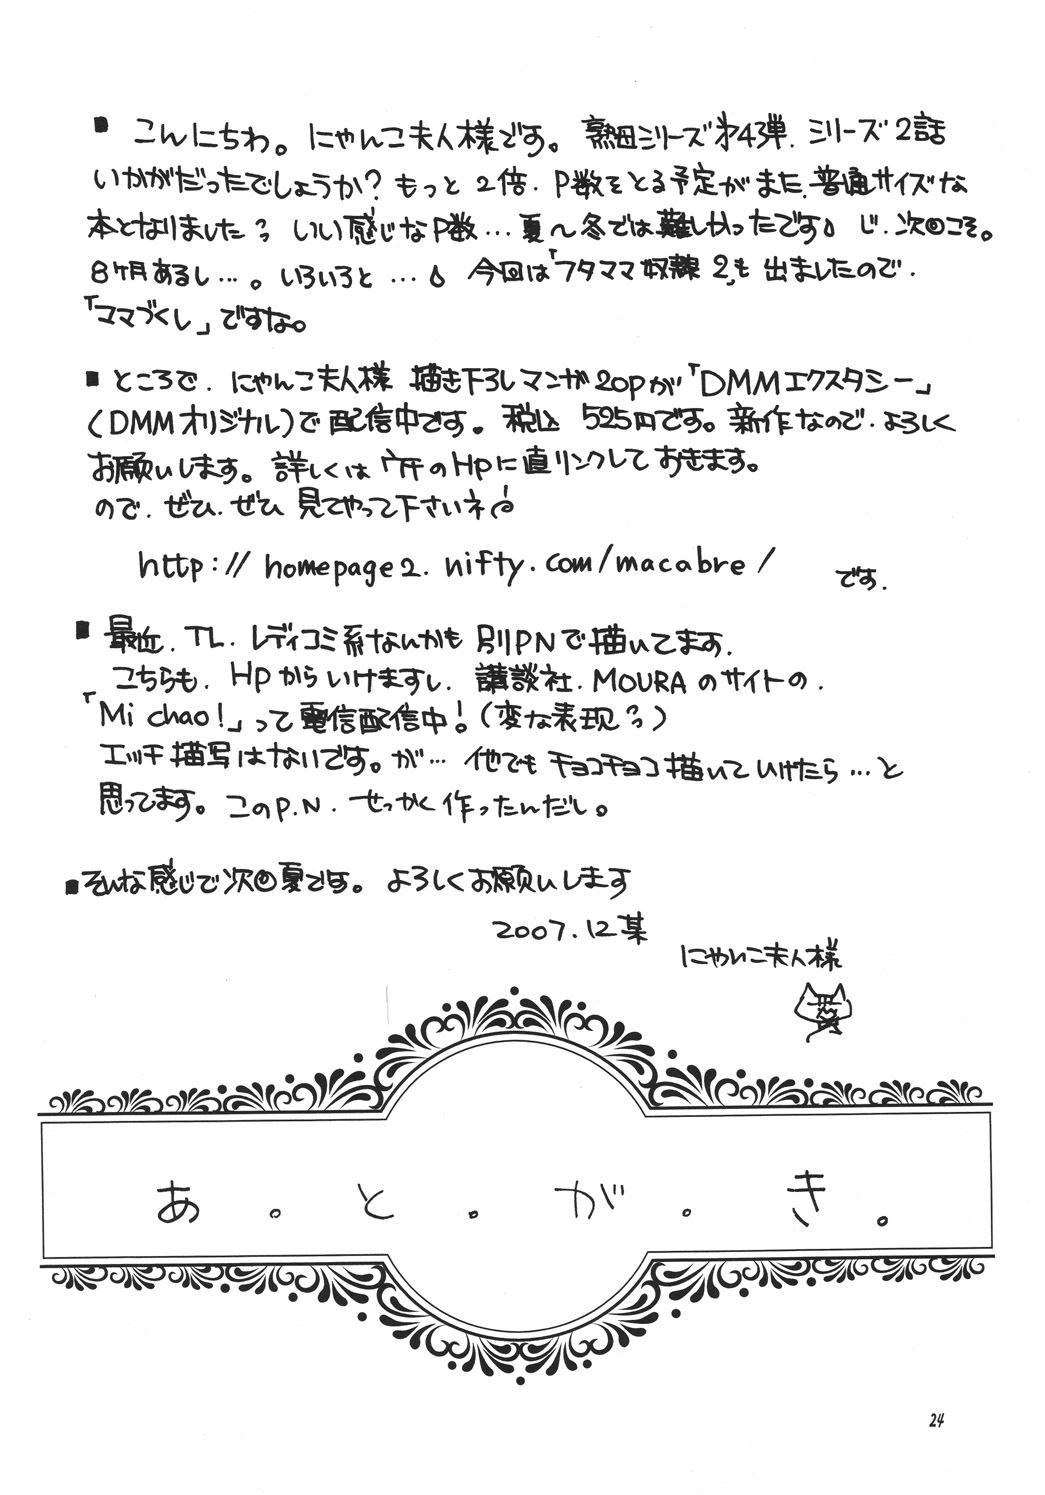 ■ こんにちわ。にゃんこ夫人様です。熟母シリーズ第4弾. シリーズ2話
いかがだったでしょうか? もっと2倍. P数をとる予定がまた.普通サイズな
本となりました いい感じなP数…夏〜冬では難しかったです じ.次回こそ。
8ヶ月あるし…。いろいろと… 今回は「フタママ奴隷2」も出ましたので.
「ママづくし」ですな。
■ ところで. にゃんこ夫人様 描き下ろしマンガ20Pが「DMMエクスタシー」
(DMMオリジナル)で配信中です。税込 525円です。新作なので.よろしく
お願いします。詳しくはウチのHPに直リンクしておきます。
ので. ぜひ.ぜひ 見てやって下さいネ
http://homepage2.nifty.com/macabre/ です.
■ 最近. TL. レディコミ系なんかも 別PNで描いてます.
こちらも. HPからいけますし. 講談社. MOURAのサイトの.
「Mi chao!」って電信配信中!(変な表現)
エッチ描写はないです。が… 他でもチョコチョコ描いていけたら…と
思ってます。このP.N. せっかく作ったんだし。
■そんな感じで次回夏です。よろしくお願いします
2007.12某
にゃんこ夫人様
あ。と。が。き。
24